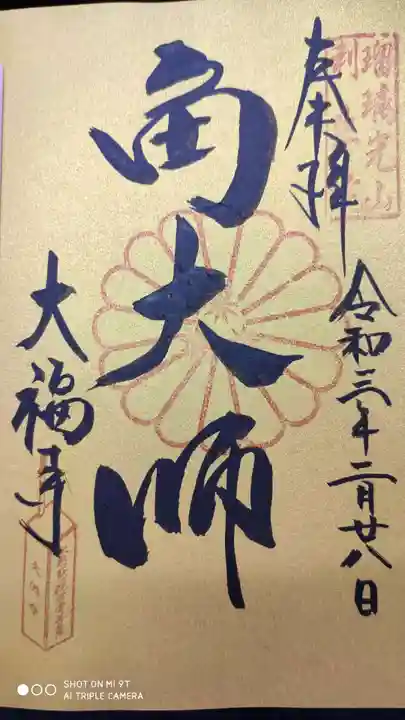 奉拝
瑠璃光山
令和三年二月廿八日
角大師
大福寺
SHOT ON MI 9T
AI TRIPLE CAMERA